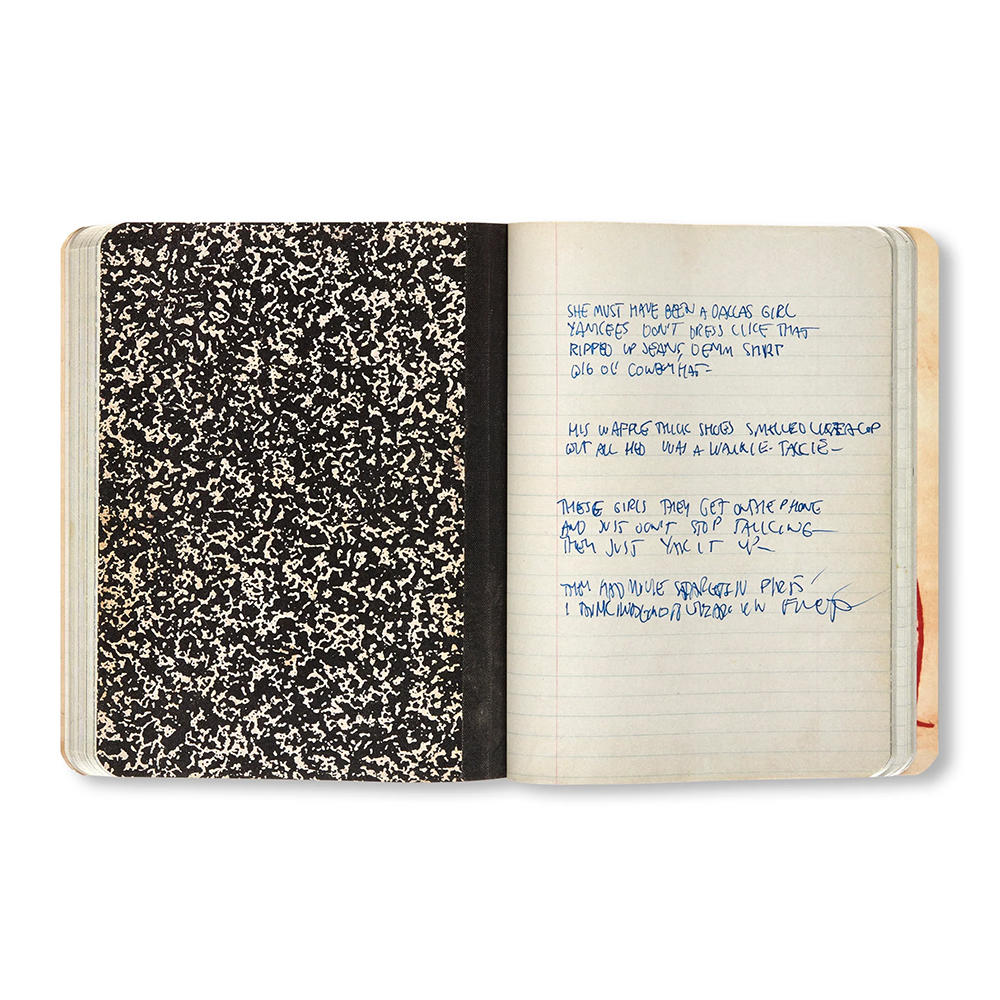 SHE MUST HAVE BEEN A DALLAS GIRL
YANKEES DON'T DRESS LIKE THAT
RIPPED UP JEANS, DENIM SHIRT
BIG OL' COWBOY HAT—
HIS WAFFLE THICK SHOES SMELLED LIKE A COP
BUT ALL HED WAS A WALKIE-TALKIE—
THESE GIRLS THEY GET ON THE PHONE
AND JUST DON'T STOP TALKING—
THEY JUST YAK IT UP—
THEY HAD MORE IN PARIS
I